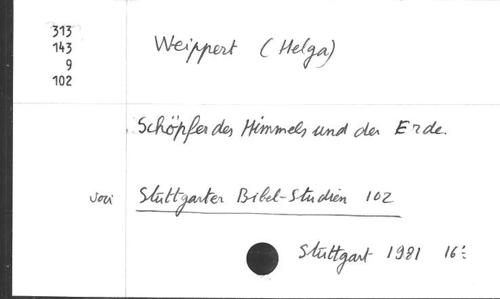 313
143
9
102
Weippert (Helga)
Schöpfer des Himmels und der Erde.
voir Stuttgarter Bibel-Studien 102
Stuttgart 1981 16°